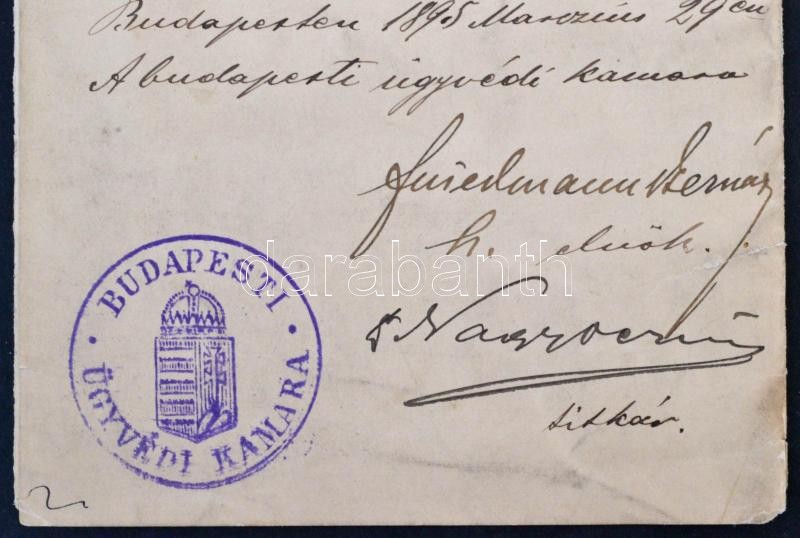 Budapesten 1895 Marczius 29 én
A budapesti ügyvédi kamara
Friedmann Bernát
h. elnök.
Dr Nagy
titkár.
BUDAPESTI
ÜGYVÉDI KAMARA
darabanth